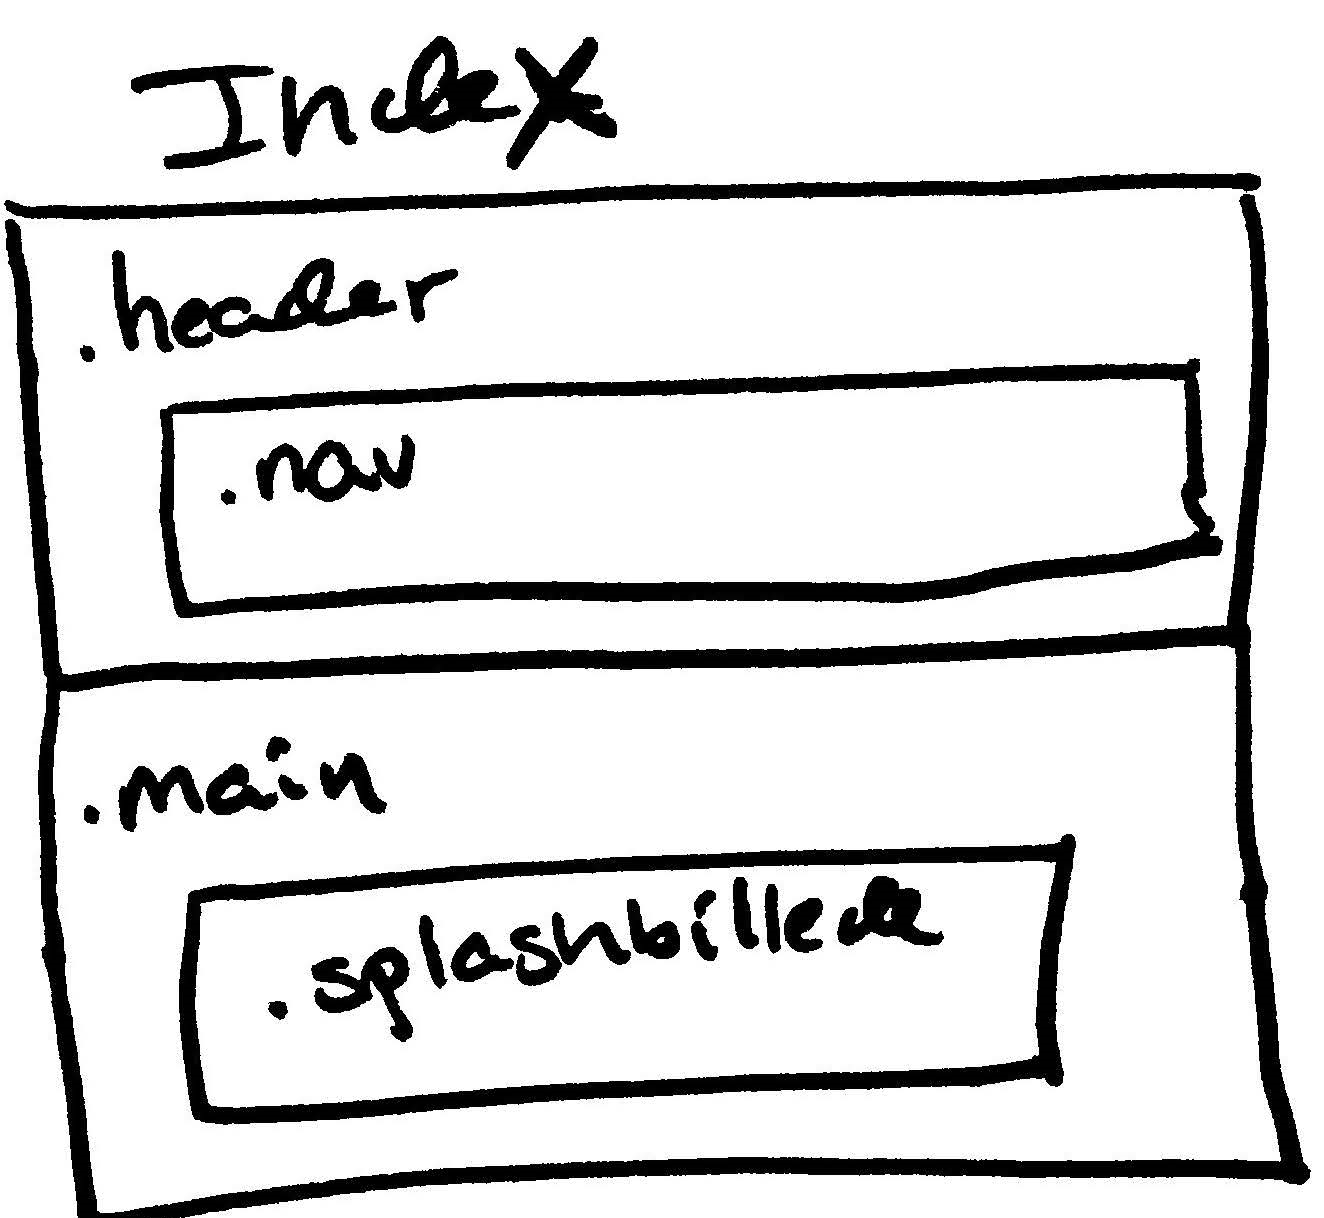 Index
.header
.nav
.main
.splashbillede